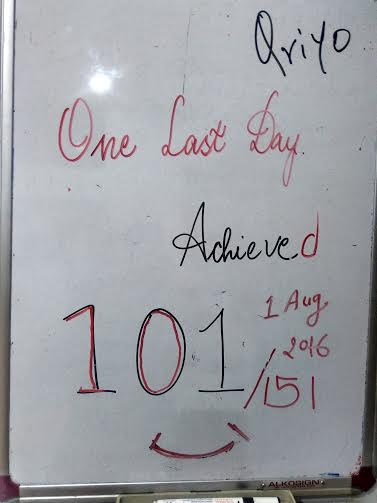 Qriyo
One Last Day.
Achieved
1 Aug
2016
101/151
ALKOSIGN